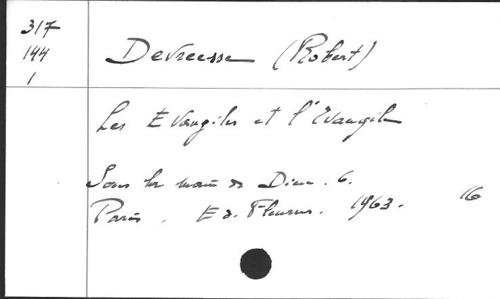 317
144
1
Devreesse (Robert)
Les Evangiles et l'Evangile
Sous la main de Dieu. 6.
Paris. Ed. Fleurus. 1963. 16